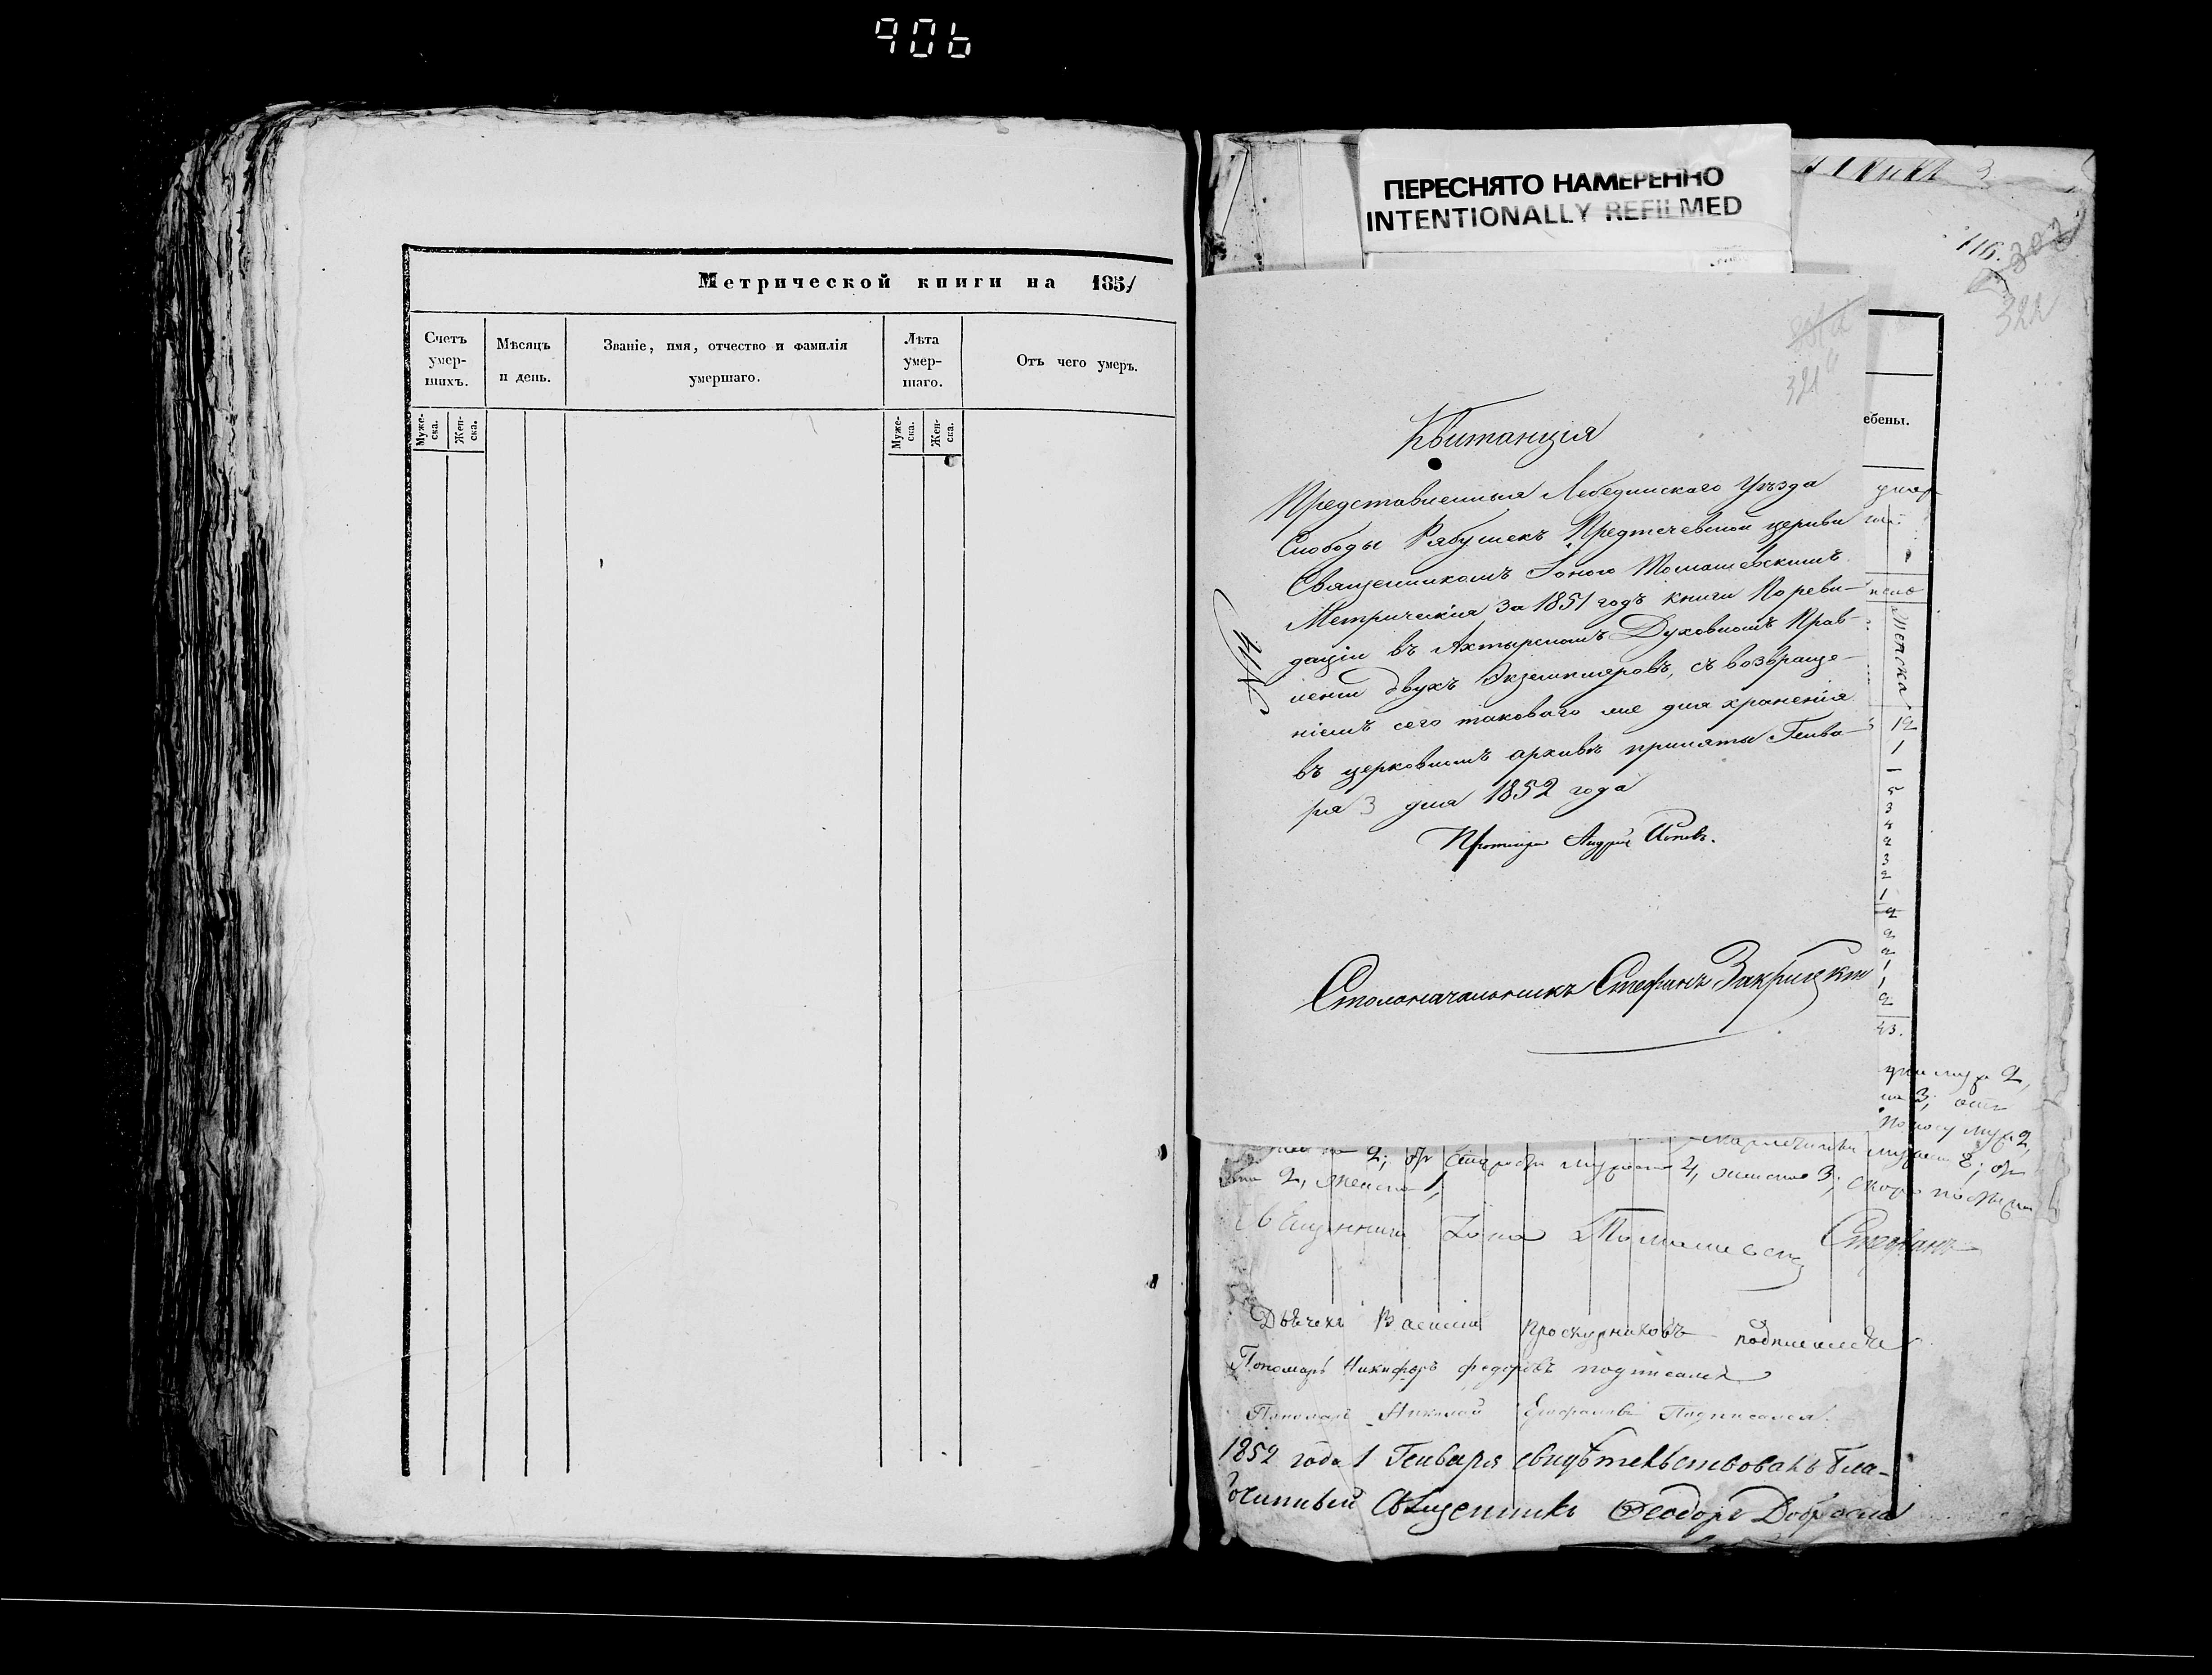 906
Метрической книги на 1851
Счетъ умер-шихъ.
Мѣсяцъ и день.
Званіе, имя, отчество и фамилія умершаго.
Лѣта умер-шаго.
Отъ чего умеръ.
Муже-ска.
Жен-ска.
Муже-ска.
Жен-ска.
ПЕРЕСНЯТО НАМЕРЕННО
INTENTIONALLY REFILMED
116.
302
322
321
ебены.
Квитанція
Представленныя Лебединскаго Уѣзда
Слободы Рябушекъ Предтечевской церкви
Священникомъ Іоною Томашевскимъ
Метрическія за 1851 годъ книги По реви-
даціи въ Ахтырскомъ Духовномъ Прав-
леніи двухъ Экземпляровъ, съ возвраще-
ніемъ сего таковаго же для храненія
въ церковномъ архивѣ приняты Генва-
ря 3 дня 1852 года
Протоіерей Андрей
Столоначальникъ Стефанъ Закрицкій
женска
12
1
1
5
3
4
2
3
2
1
2
2
2
1
1
2
43.
2,
3;
2,
2; 4, 3; скоро
2, женска 1,
Священникъ Іона Томашевскій Стефанъ
Дьячекъ Василій Проскурниковъ подписался
Пономарь Никифоръ Федоровъ подписался
Пономарь Николай Подписался.
1852 года 1 Генваря свидѣтельствовалъ Бла-
гочинный Священникъ Феодоръ